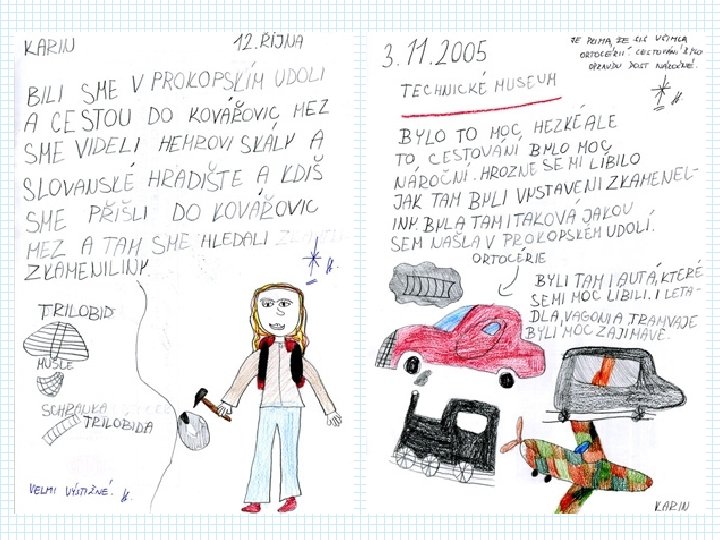 KARIN
12. ŘÍJNA
BILI SME V PROKOPSKÍM UDOLI
A CESTOU DO KOVÁŘOVIC MEZ
SME VIDELI HEMROVI SKÁLY A
SLOVANSKÉ HRADIŠTE A KDIŠ
SME PŘIŠLI DO KOVÁŘOVIC
MEZ A TAM SME HLEDALI
ZKAMENILINY.
TRILOBID
MUŠLE
SCHRÁNKA
TRILOBIDA
VELMI VÝSTIŽNÉ.
3.11.2005
JE PRIMA, ŽE SIS VŠIMLA
ORTOCÉRIÍ. CESTOVÁNÍ BYLO
OPRAVDU DOST NÁROČNÉ.
TECHNICKÉ MUSEUM
BYLO TO MOC HEZKÉ ALE
TO CESTOVÁNÍ BYLO MOC
NÁROČNÍ. HROZNE SE MI LÍBILO
JAK TAM BYLI VYSTAVENI ZKAMENEL-
INY. BYLA TAM I TAKOVÁ JAKOU
SEM NAŠLA V PROKOPSKÉM UDOLÍ.
ORTOCÉRIE
BYLI TAM I AUTA, KTERÉ
SEMI MOC LÍBILI. I LETA-
DLA, VAGONIA TRAMVAJE
BYLI MOC ZAJÍMAVÉ.
KARIN